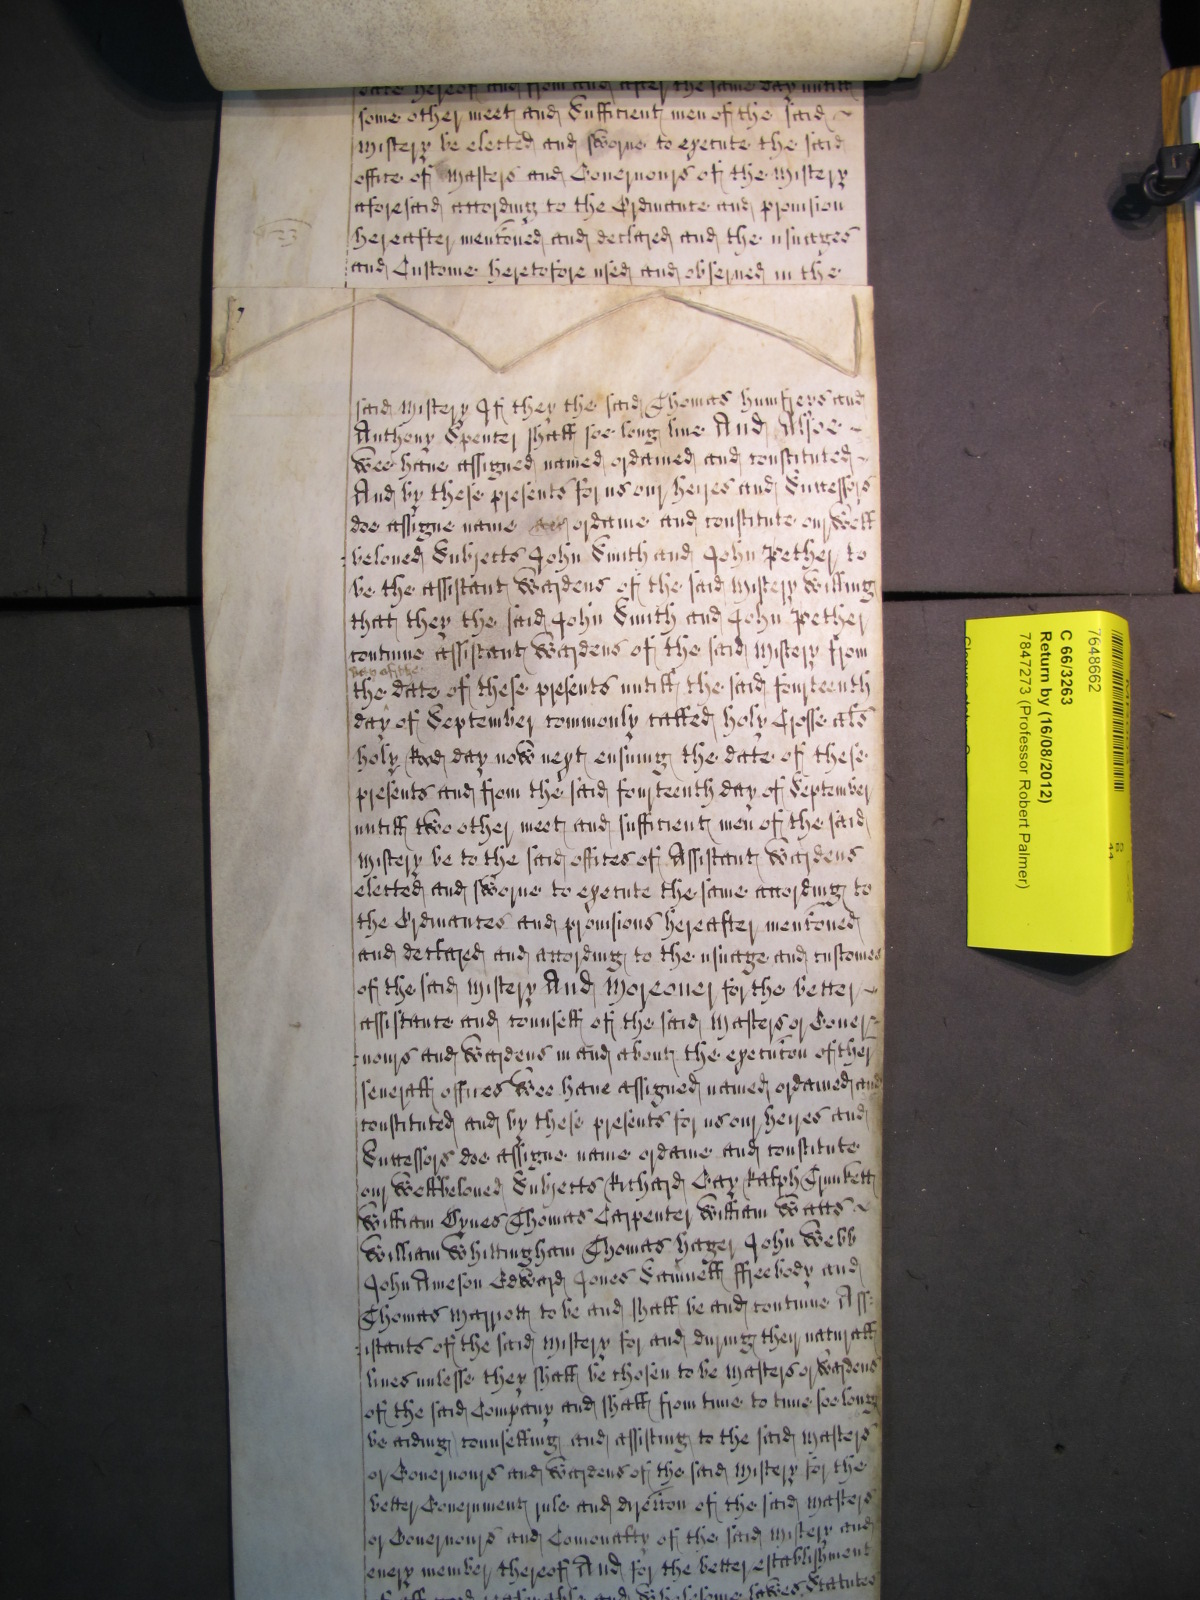 date hereof and from and after the same day untill
some other meet and Sufficient men of the said
Mistery be elected and sworne to execute the said
office of Masters and Governours of the Mistery
aforesaid according to the Ordinance and provision
hereafter mencioned and declared and the usuages
and Custome heretofore used and observed in the
said Mistery If they the said Thomas Humfreys and
Anthony Spencer shall soe long live And Alsoe
wee have assigned named ordained and constituted
And by these presents for us our heires and Successors
doe assigne name ordaine and constitute our well
beloved Subjects John Smith and John Pether to
be the assistant Wardens of the said Mistery willing
that they the said John Smith and John Pether
continue assistant Wardens of the said Mistery from
day of the
the date of these presents untill the said fourteenth
day of September commonly called holy Crosse als
holy Rood day now next ensuing the date of these
presents and from the said fourteenth day of September
untill two other meet and sufficient men of the said
mistery be to the said offices of Assistant Wardens
elected and sworne to execute the same according to
the Ordinances and provisions hereafter mencioned
and declared and according to the usuage and customes
of the said Mistery And Moreover for the better
assistance and counsell of the said Masters or Gover
nours and Wardens in and about the execucion of ther
severall offices Wee have assigned named ordained and
constituted and by these presents for us our heires and
Successors doe assigne name ordaine and constitute
our Welbeloved Subjects Richard Gay Ralph Trunkett
William Gynes Thomas Carpenter William Watts
William Whittingham Thomas Hager John Webb
John Ameson Edward Jones Samuell ffreebody and
Thomas Marrott to be and shall be and continue Ass:
istants of the said Mistery for and during their naturall
lives unlesse they shall be chosen to be Masters or Wardens
of the said Company and shall from time to time soe long
be aiding counselling and assisting to the said Masters
or Governours and Wardens of the said Mistery for the
better Government rule and direccion of the said Masters
or Governours and Comonalty of the said Mistery and
every member thereof And for the better establishment
wholesome lawes Statutes
7648662
C 66/3263
Return by (16/08/2012)
7847273 (Professor Robert Palmer)